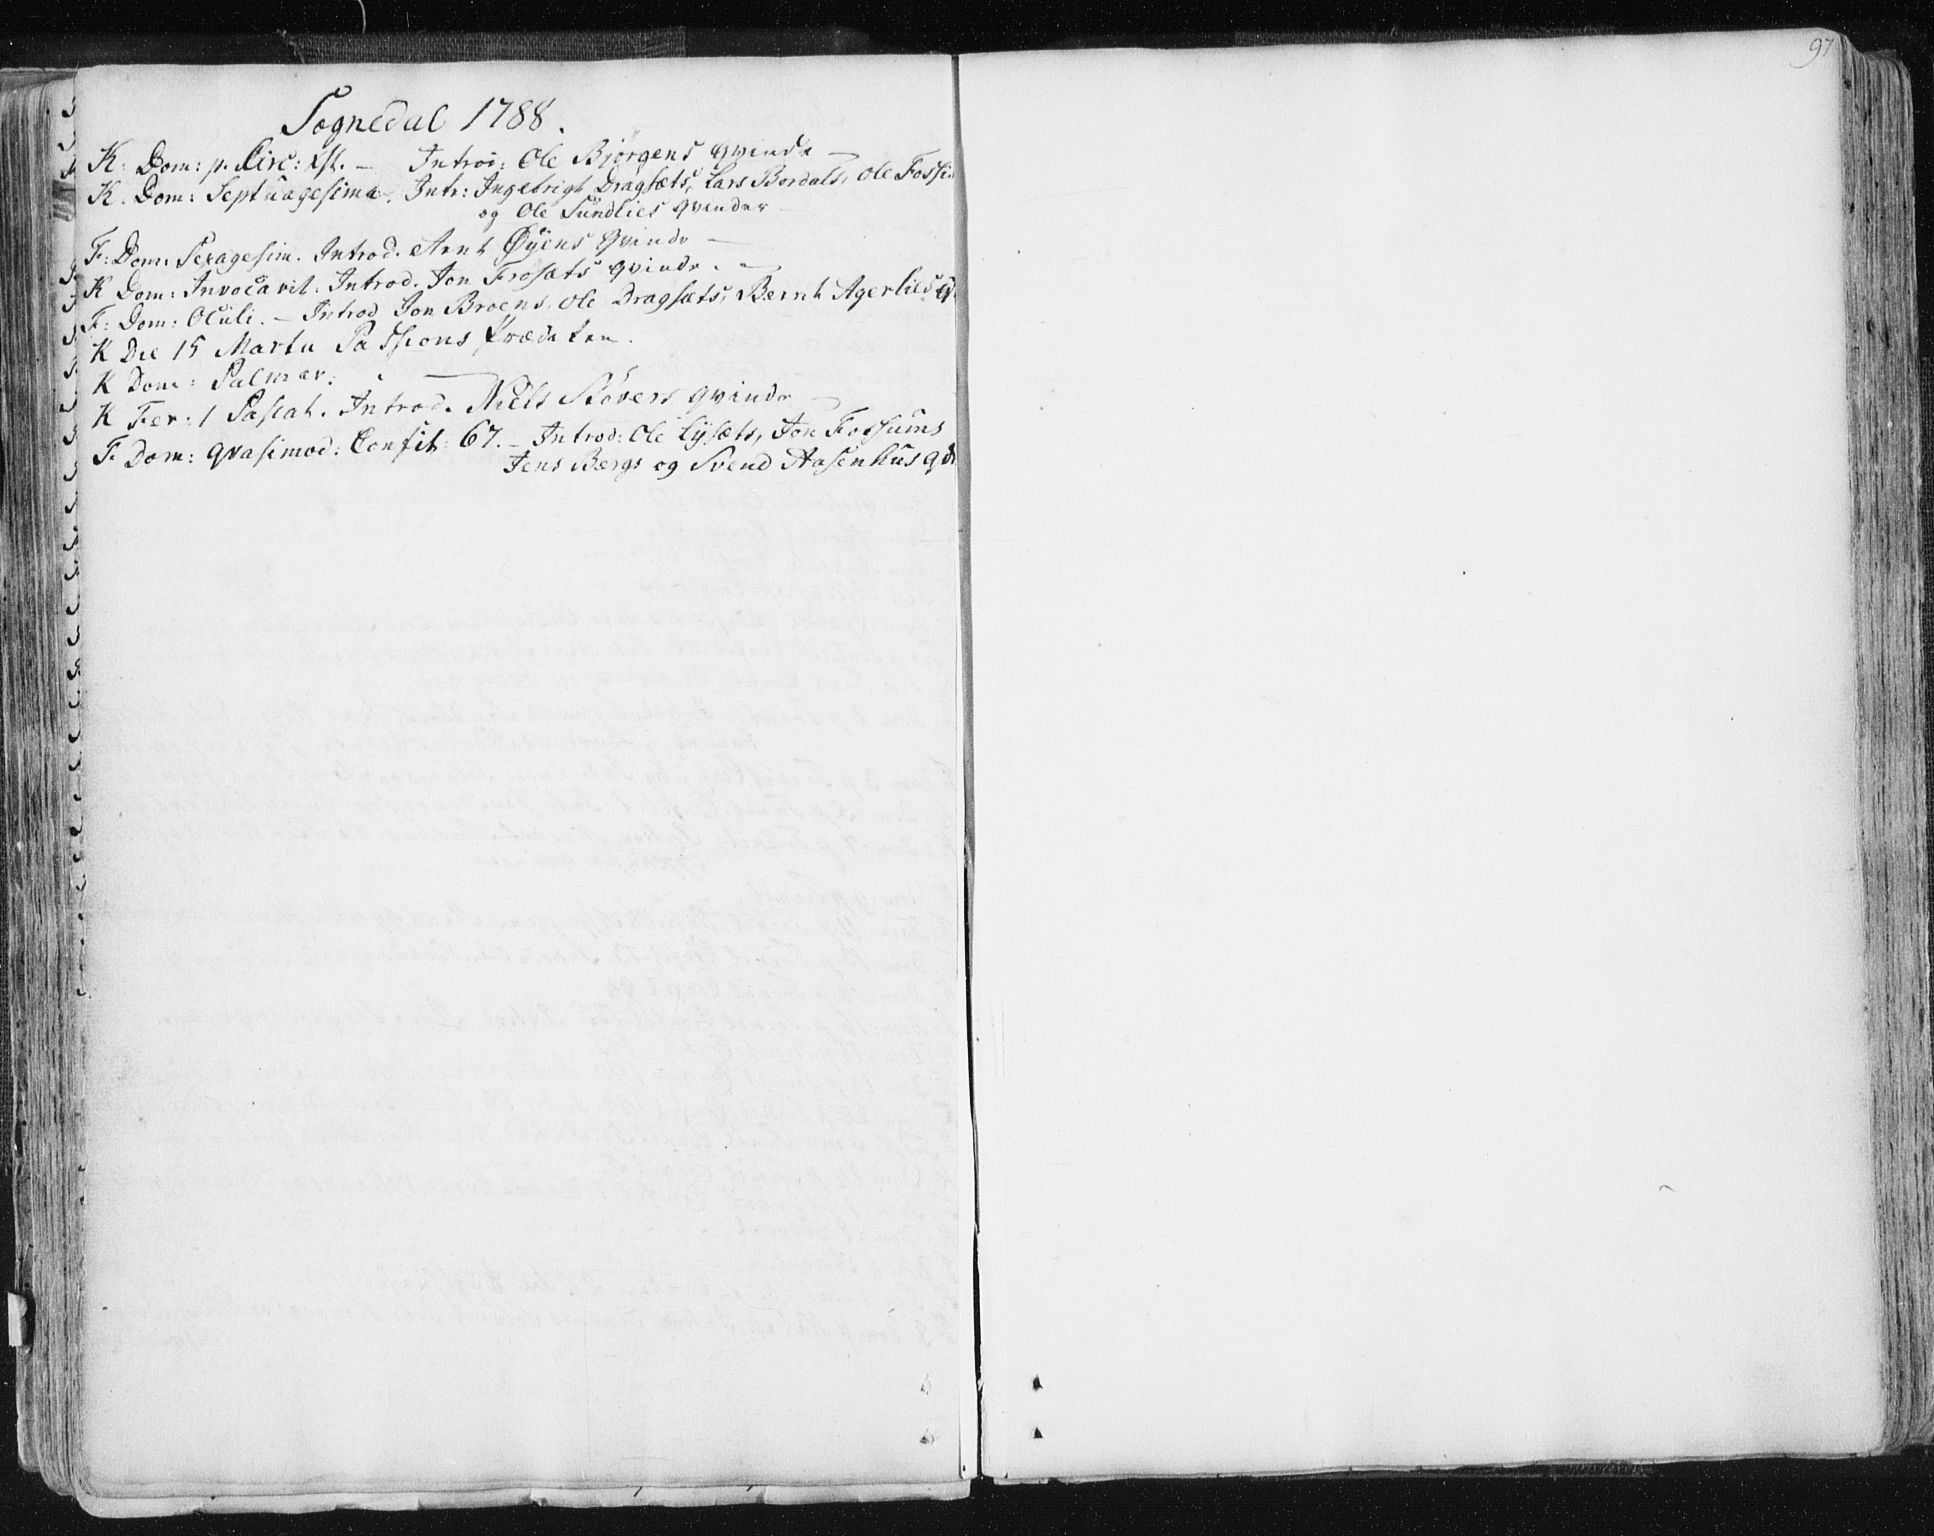 Sognedal 1788.
K. Dom: p. Circ: Xsti. — Introd: Ole Bjørgens qvinde —
K. Dom: Septuagesima. Intr: Ingebrigt Dragsæts, Lars Bordals, Ole Fossi
og Ole Sundlies qvinder —
F: Dom: Sexagesim. Introd. Arnt Øyens qvinde —
K Dom: Invocavit. Introd. Jon Frosæts qvinde. —
F: Dom: Oculi. — Introd Jon Broens, Ole Dragsæts, Bernt Agerlies q
K Die 15 Martii Passions Prædiken.
K Dom: Palmar: —
K Fer: 1 Pascat. Introd. Niels Støvers qvinde —
F Dom: qvasimod: Confit: 67. — Introd: Ole Lysæts, Jon Fossums
Jens Bergs og Svend Aasenhus qv
97